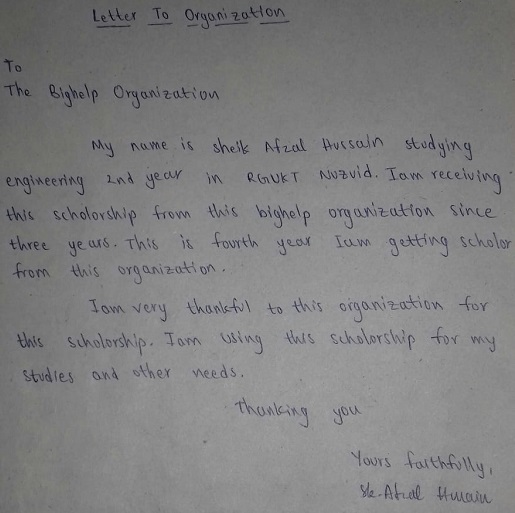 Letter To Organization
To
The Bighelp Organization
My name is sheik Afzal Hussain studying
engineering 2nd year in RGUKT Nuzvid. Iam receiving
this scholorship from this bighelp organization since
three years. This is fourth year Iam getting scholor
from this organization.
Iam very thankful to this organization for
this scholorship. Iam using this scholorship for my
studies and other needs.
Thanking you
Yours faithfully,
Sk. Afzal Hussain